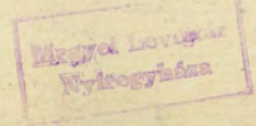 Megyei Levéltár
Nyíregyháza